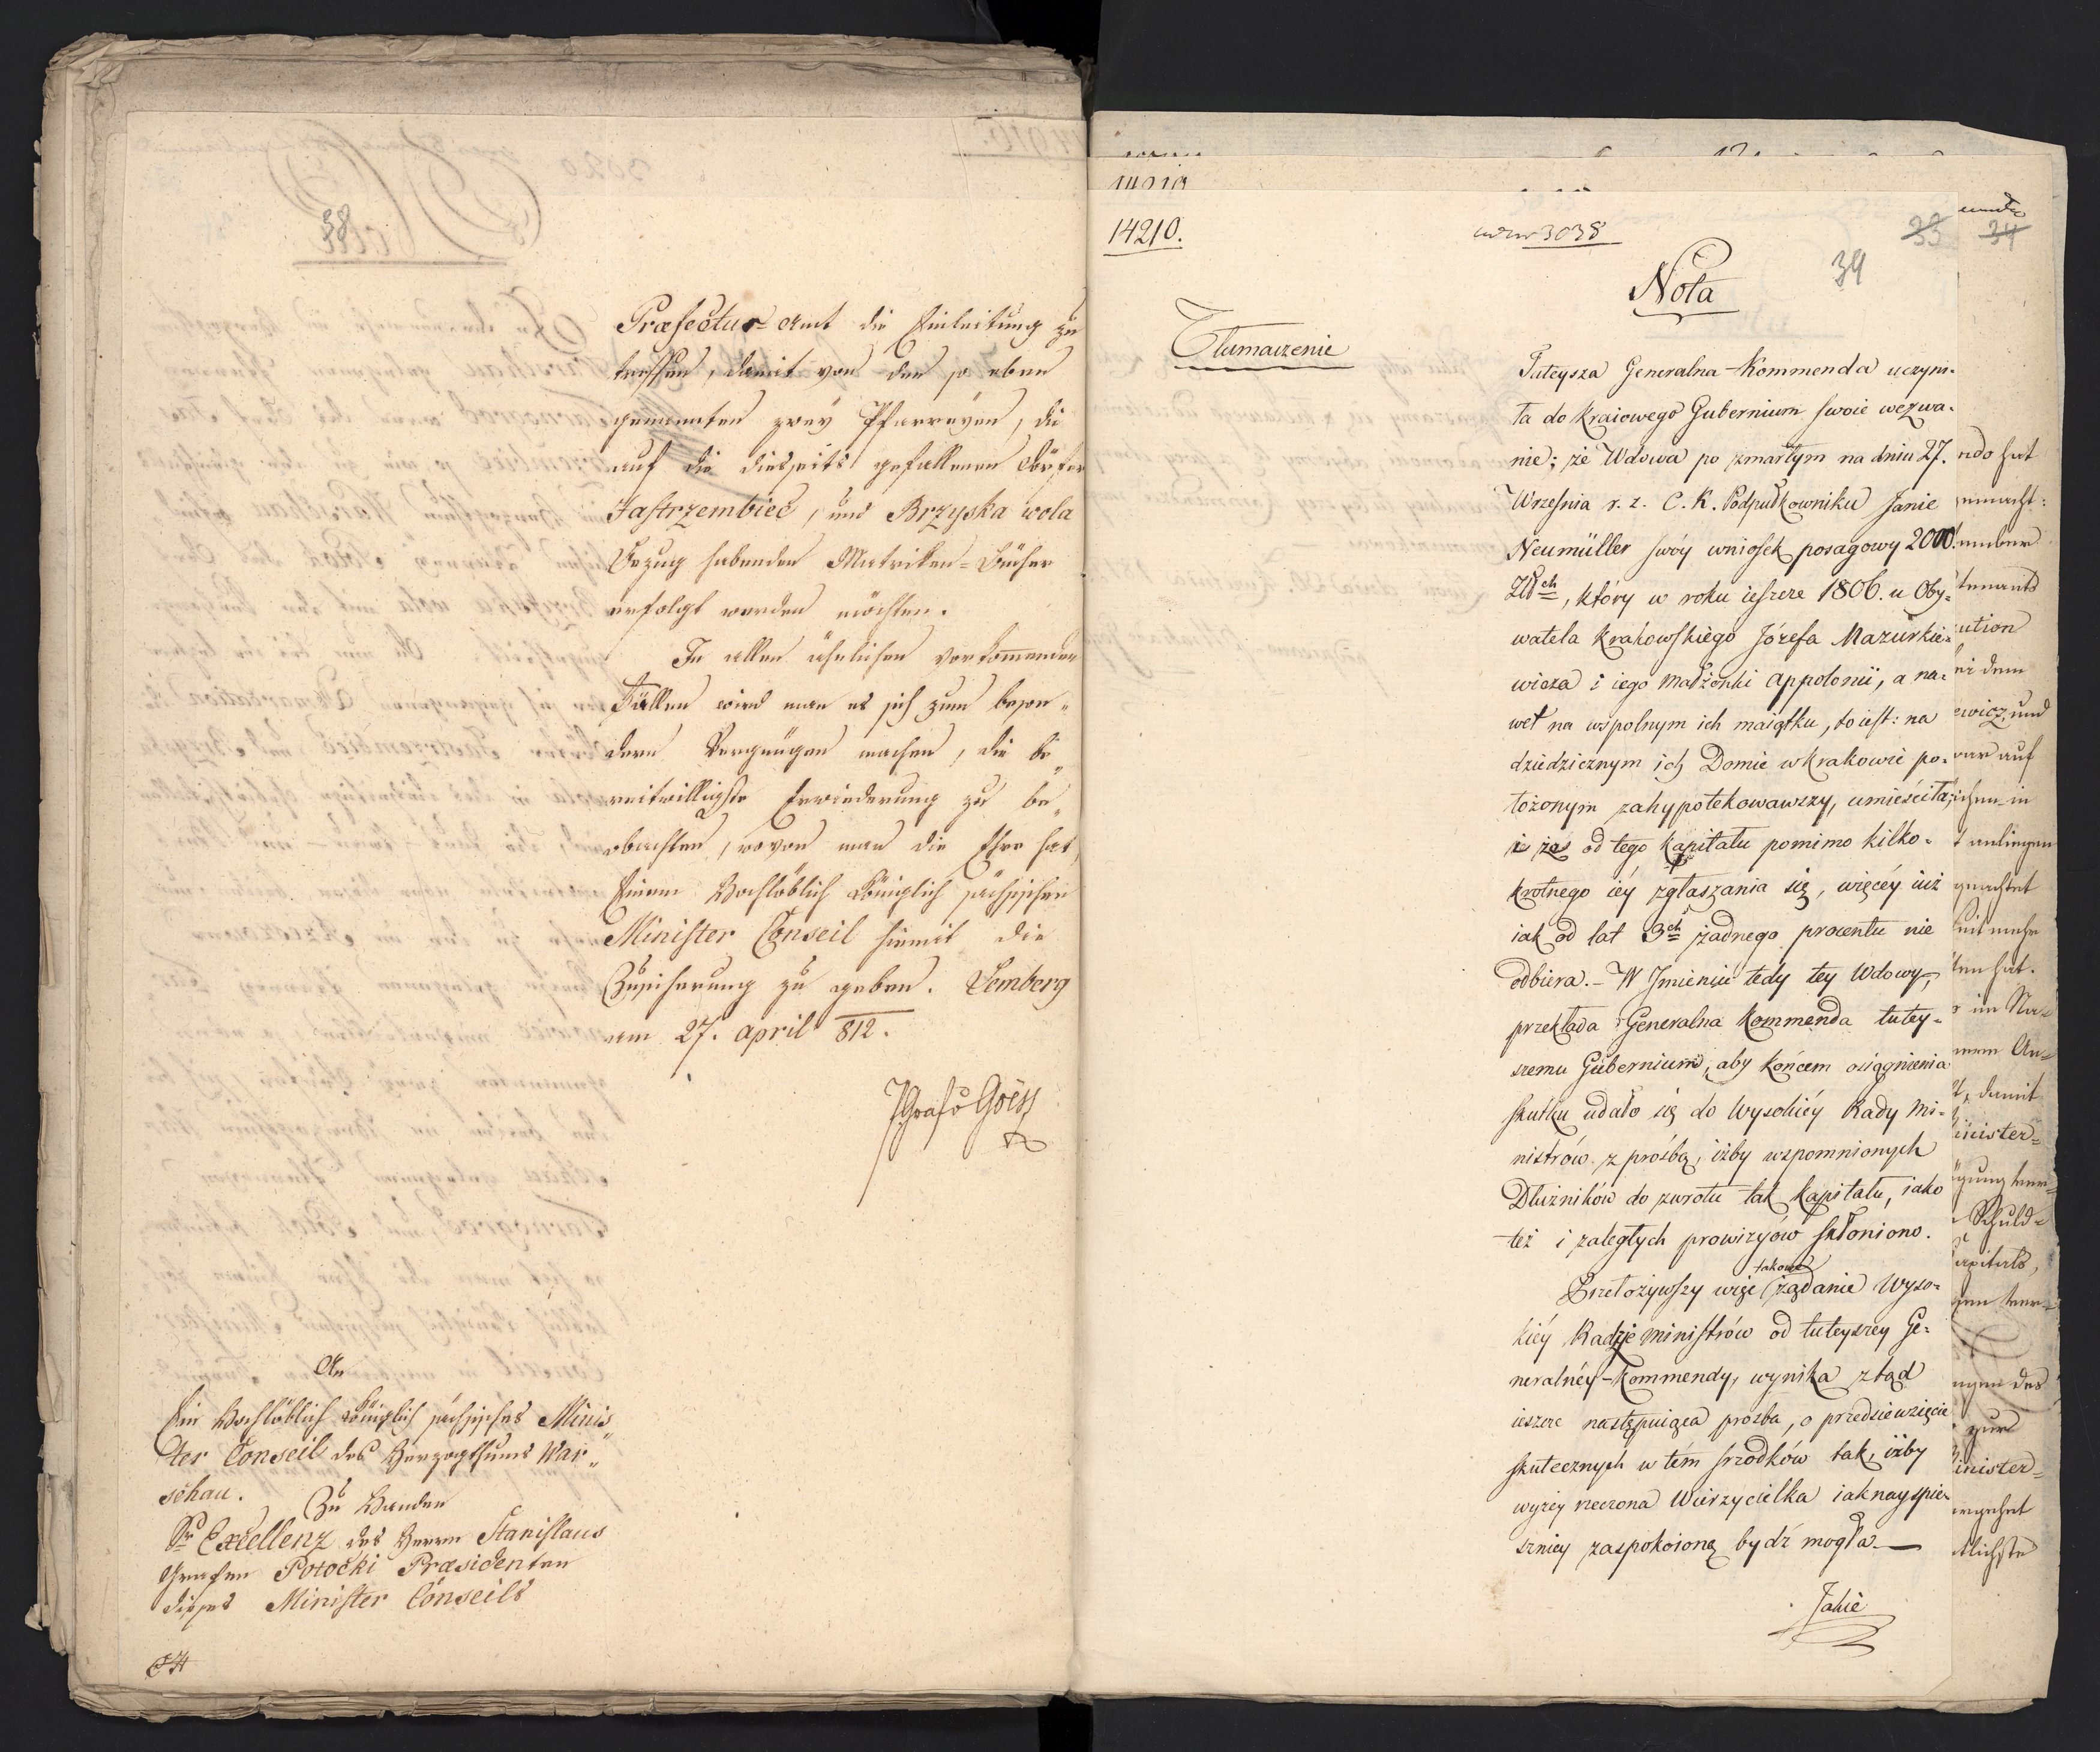 38
Præfectur-Amt die Einleitung zu
treffen, damit von den so eben
genannten zwey Pfarreyen, die
auf die dießseits gefallenen Dörfer
Jastrzembiec, und Brzyska wola
Bezug habenden Matriken-Bücher
erfolgt werden möchten.
In allen ähnlichen vorkommenden
Fällen wird man es sich zum beson„
dern Vergnügen machen, die be„
reitwilligste Erwiederung zu be„
obachten, wovon man die Ehre hat,
Einem Hochlöblich Königlich sächsischen
Minister Conseil hiemit die
Zusicherung zu geben. Lemberg
am 27. April 812.
J Graf v Goëss
An
Ein Hochlöblich Königlich sächsisches Minis„
ter Conseil des Herzogthums War„
schau.
Zu Handen
Sr Excellenz des Herrn Stanislaus
Grafen Potocki Præsidenten
dieses Minister Conseils
14210.
3038
33
34
39
Nota
Tłumaczenie
Tuteysza Generalna Kommenda uczyni-
ła do kraiowego Gubernium swoie wezwa-
nie; że Wdowa po zmarłym na dniu 27.
Września r. z. C. K. Podpułkowniku Janie
Neumüller swóy wniosek posagowy 2000.
ZłRch, który w roku ieszcze 1806. u Oby-
watela krakowskiego Józefa Mazurkie-
wicza i iego małżonki Appolonii, a na-
wet na wspolnym ich maiątku, to iest: na
dziedzicznym ich Domie w krakowie po-
łożonym zahypotekowawszy, umieściła;
i że od tego kapitału pomimo kilko-
krotnego iéy zgłaszania się, więcéy iuż
iak od lat 3ch żadnego procentu nie
odbiera. - W Jmieniu tedy tey Wdowy,
przekłada Generalna Kommenda tutey-
szemu Gubernium, aby końcem osiągnienia
skutku udało się do Wysokiéy Rady Mi-
nistrów z prośbą, iżby wspomnionych
Dłużników do zwrotu tak kapitału, iako
też i zaległych prowizyów skłoniono.
Przełożywszy więc takowe żądanie Wyso-
kiéy Radzie ministrów od tuteyszey Ge-
neralnéy Kommendy, wynika ztąd
ieszcze następuiąca prozba, o przedsiewzięcie
skutecznych w tém srzodków tak, iżby
wyżey rzeczona Wierzycielka iaknayspie-
szniey zaspokoioną bydź mogła. —
Jakie